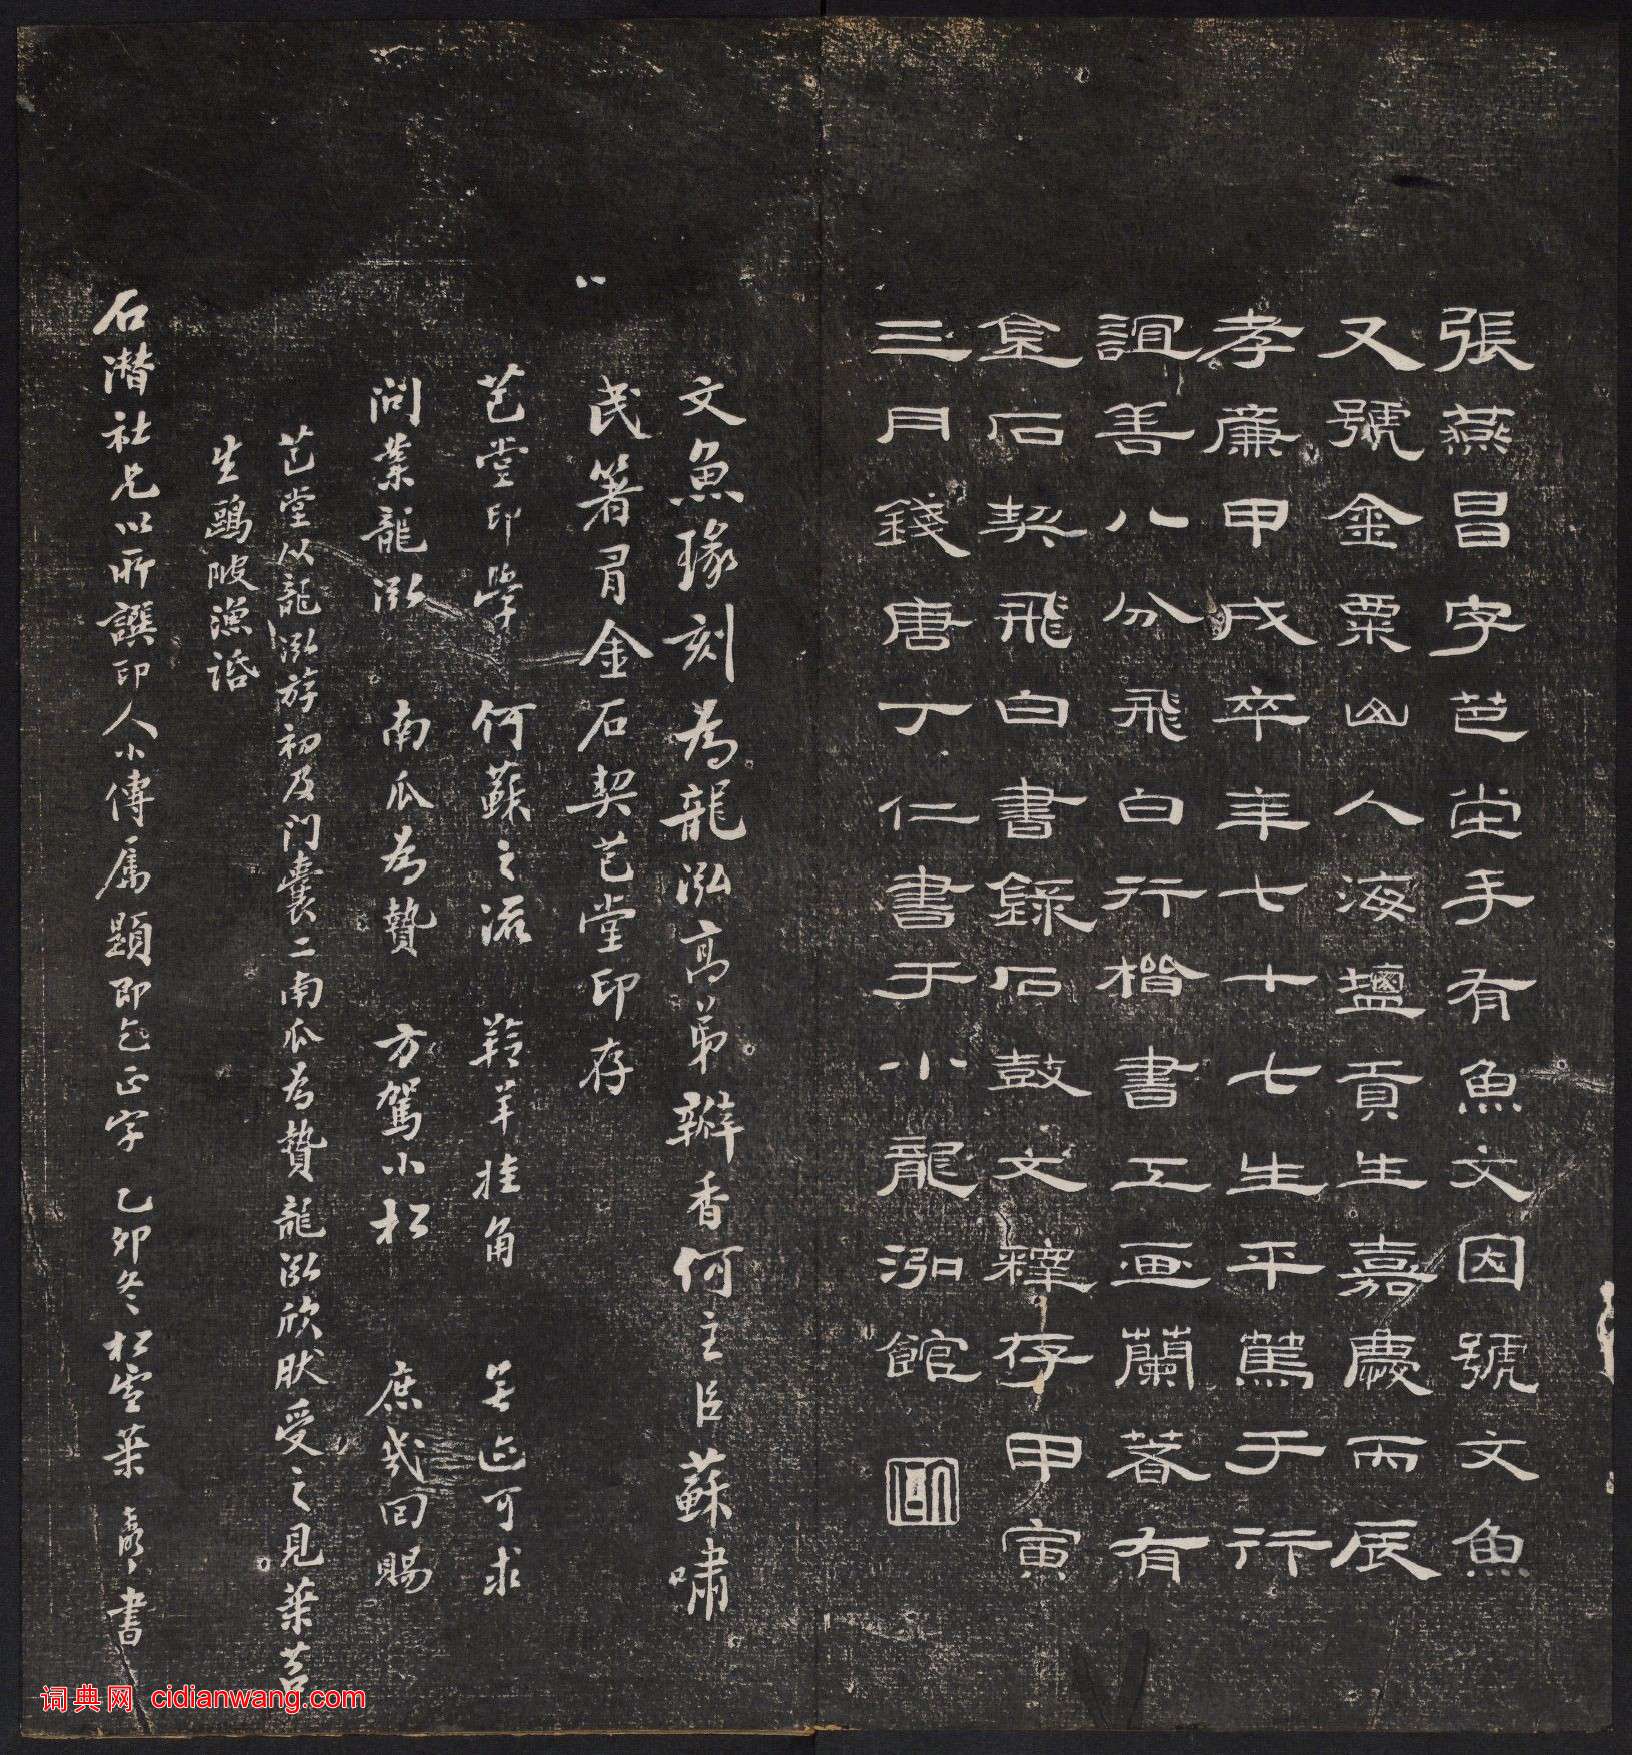 張燕昌字芑堂手有魚文因號文魚
又號金粟山人海鹽貢生嘉慶丙辰
孝廉甲戌卒年七十七生平篤于行
誼善八分飛白行楷書工画蘭著有
金石契飛白書錄石鼓文釋存甲寅
三月錢唐丁仁書于小龍泓館
文魚瑑刻為龍泓高弟瓣香何主臣蘇嘯
民箸有金石契芑堂印存
芑堂印學 何蘇之流 羚羊挂角 無迹可求
問業龍泓 南瓜為贄 方駕小松 庶幾回賜
芑堂從龍泓游初及门囊二南瓜為贄龍泓欣肰受之見葉苕
生鷗陂漁話
石潛社兄以所譔印人小傳属題即乞正字 乙卯冬松雪葉 書
词典网 cidianwang.com